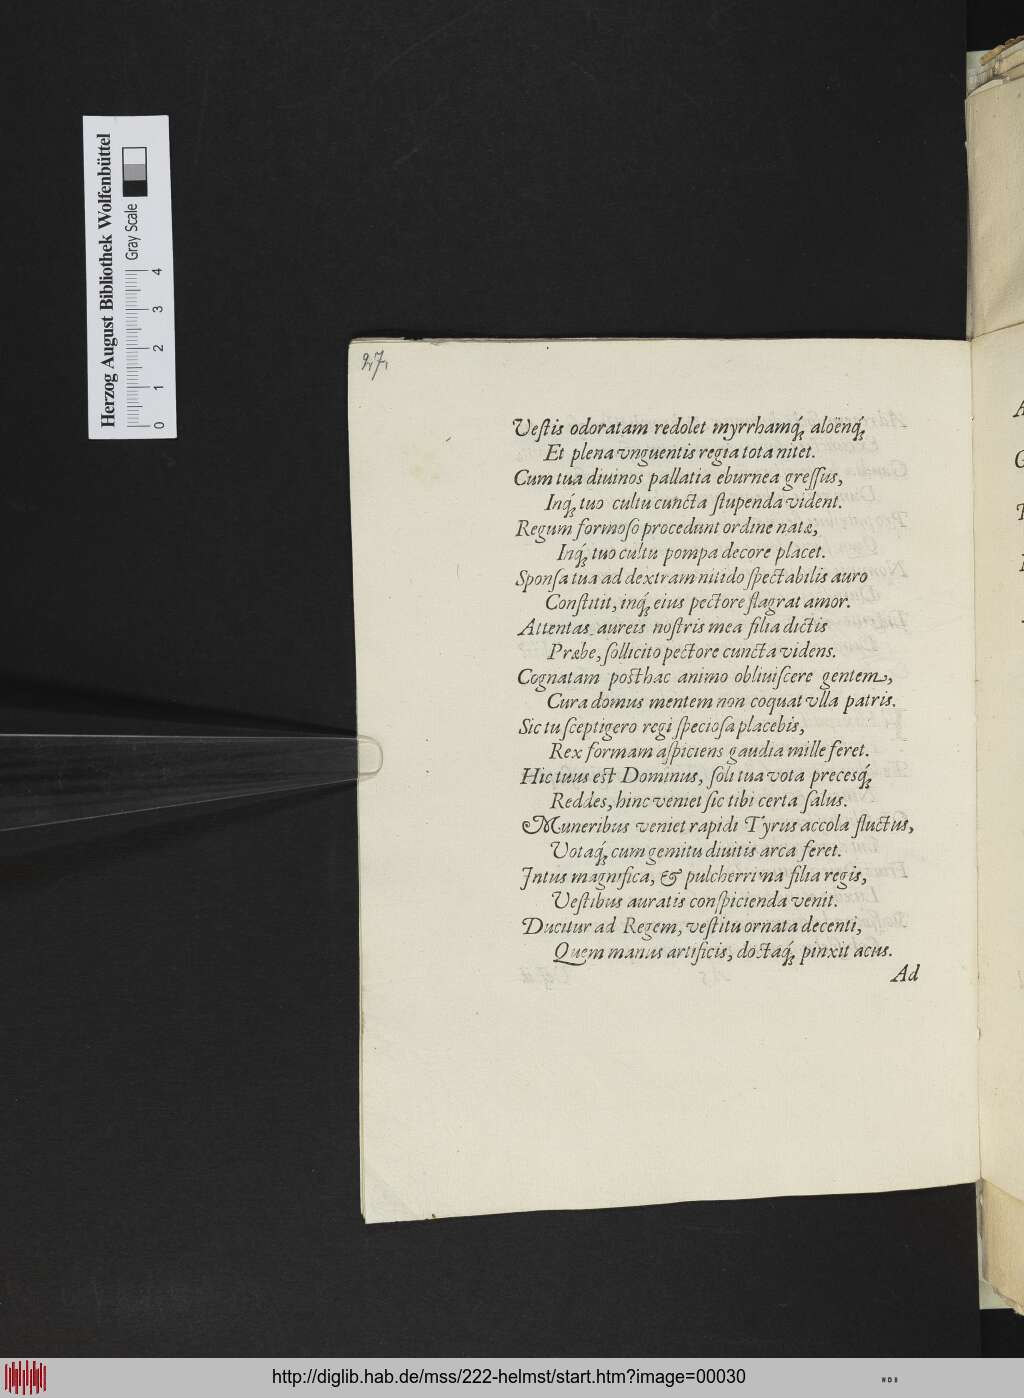 Herzog August Bibliothek Wolfenbüttel
Gray Scale
0 1 2 3 4
27.
Veſtis odoratam redolet myrrhamq́; aloënq́;
Et plena vnguentis regia tota nitet.
Cum tua diuinos pallatia eburnea greſſus,
Inq́; tuo cultu cuncta ſtupenda vident.
Regum formoſo procedunt ordine natæ,
Inq́; tuo cultu pompa decore placet.
Sponſa tua ad dextram nitido ſpectabilis auro
Conſtitit, inq́; eius pectore flagrat amor.
Attentas aureis noſtris mea filia dictis
Præbe, ſollicito pectore cuncta videns.
Cognatam poſthac animo obliuiſcere gentem,
Cura domus mentem non coquat vlla patris.
Sic tu ſceptigero regi ſpecioſa placebis,
Rex formam aſpiciens gaudia mille feret.
Hic tuus eſt Dominus, ſoli tua vota precesq́;
Reddes, hinc veniet ſic tibi certa ſalus.
Muneribus veniet rapidi Tyrus accola fluctus,
Votaq́; cum gemitu diuitis arca feret.
Intus magnifica, & pulcherrima filia regis,
Veſtibus auratis conſpicienda venit.
Ducitur ad Regem, veſtitu ornata decenti,
Quem manus artificis, doctaq́; pinxit acus.
Ad
http://diglib.hab.de/mss/222-helmst/start.htm?image=00030